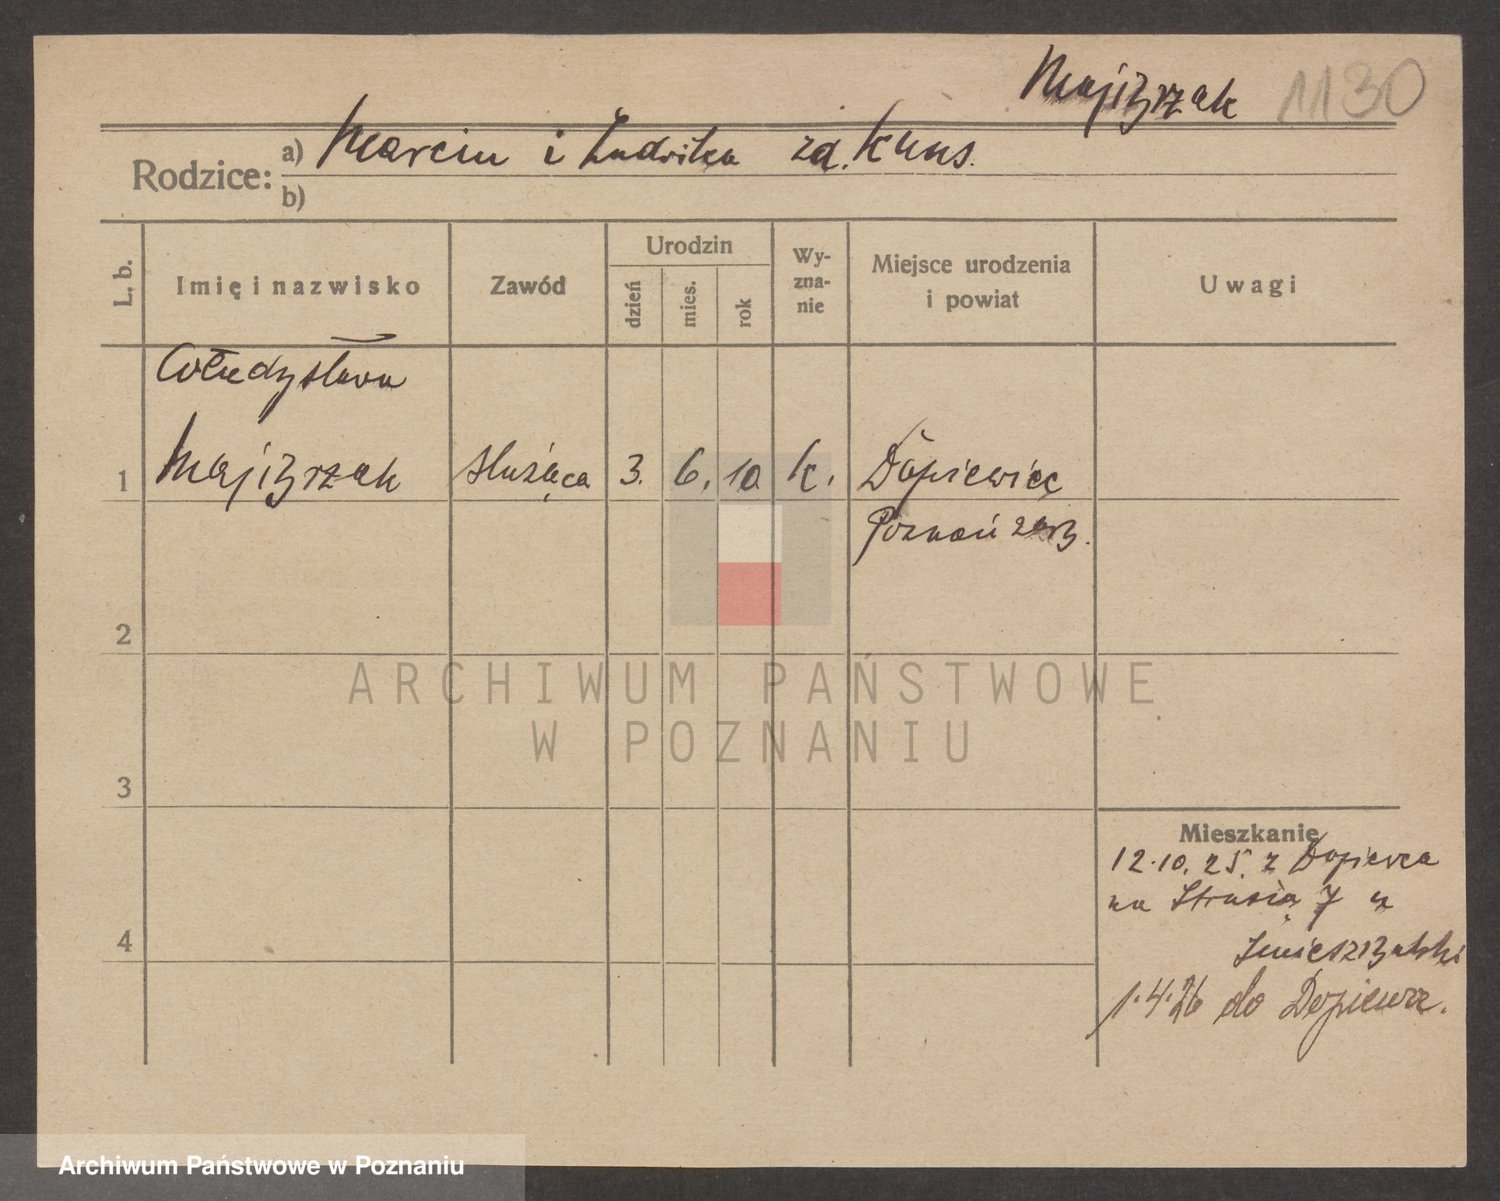 Majchrzak 1130
Rodzice: a) Marcin i Ludwika zd. Kuns.
b)
L. b.
Imię i nazwisko
Zawód
Urodzin
dzień
mies.
rok
Wy-
zna-
nie
Miejsce urodzenia
i powiat
Uwagi
Władysława
1 Majchrzak służąca 3. 6. 10 k. Dopiewiec
Poznań zach.
2
ARCHIWUM PAŃSTWOWE
W POZNANIU
3
Mieszkanie
12.10.25. z Dopiewca
na Strusia 7 u
4
1.4.26 do Dopiewca.
Archiwum Państwowe w Poznaniu